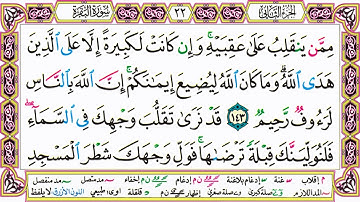 الجزء الثاني ٢٢ سورة البقرة
مِمَّن يَنقَلِبُ عَلَىٰ عَقِبَيْهِ ۚ وَإِن كَانَتْ لَكَبِيرَةً إِلَّا عَلَى الَّذِينَ
هَدَى اللَّهُ ۗ وَمَا كَانَ اللَّهُ لِيُضِيعَ إِيمَانَكُمْ ۚ إِنَّ اللَّهَ بِالنَّاسِ
لَرَءُوفٌ رَّحِيمٌ ١٤٣ قَدْ نَرَىٰ تَقَلُّبَ وَجْهِكَ فِي السَّمَاءِ ۖ
فَلَنُوَلِّيَنَّكَ قِبْلَةً تَرْضَاهَا ۚ فَوَلِّ وَجْهَكَ شَطْرَ الْمَسْجِدِ